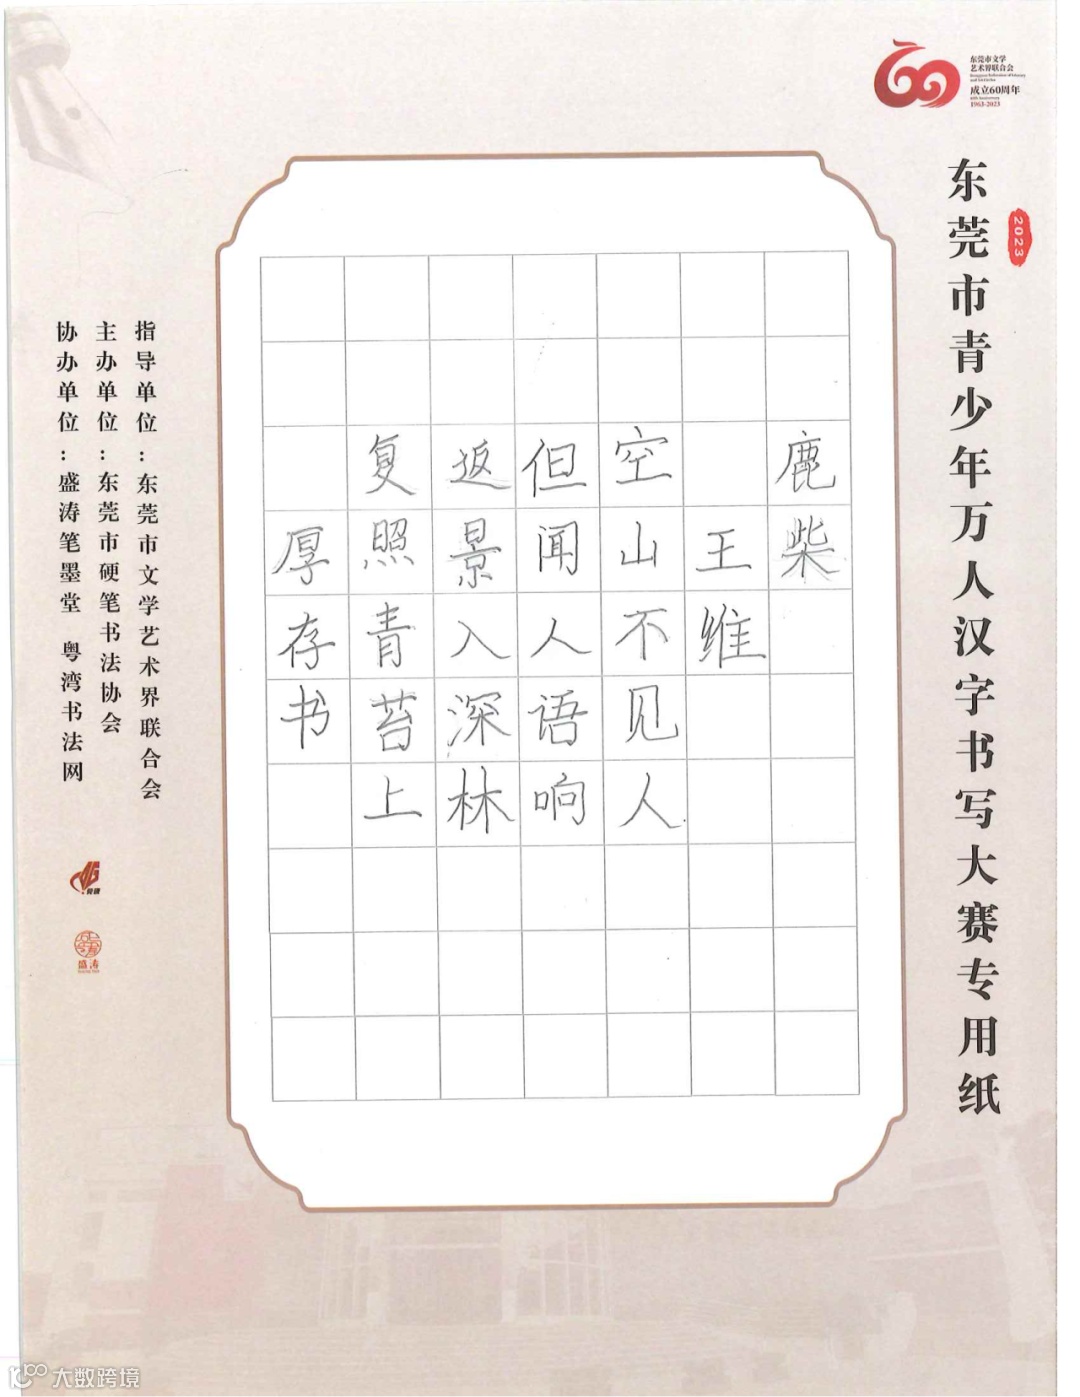 东莞市文学
艺术界联合会
成立60周年
1963-2023
2023
东莞市青少年万人汉字书写大赛专用纸
鹿柴
王维
空山不见人
但闻人语响
返景入深林
复照青苔上
厚存书
指导单位：东莞市文学艺术界联合会
主办单位：东莞市硬笔书法协会
协办单位：盛涛笔墨堂 粤湾书法网
盛涛
大数跨境